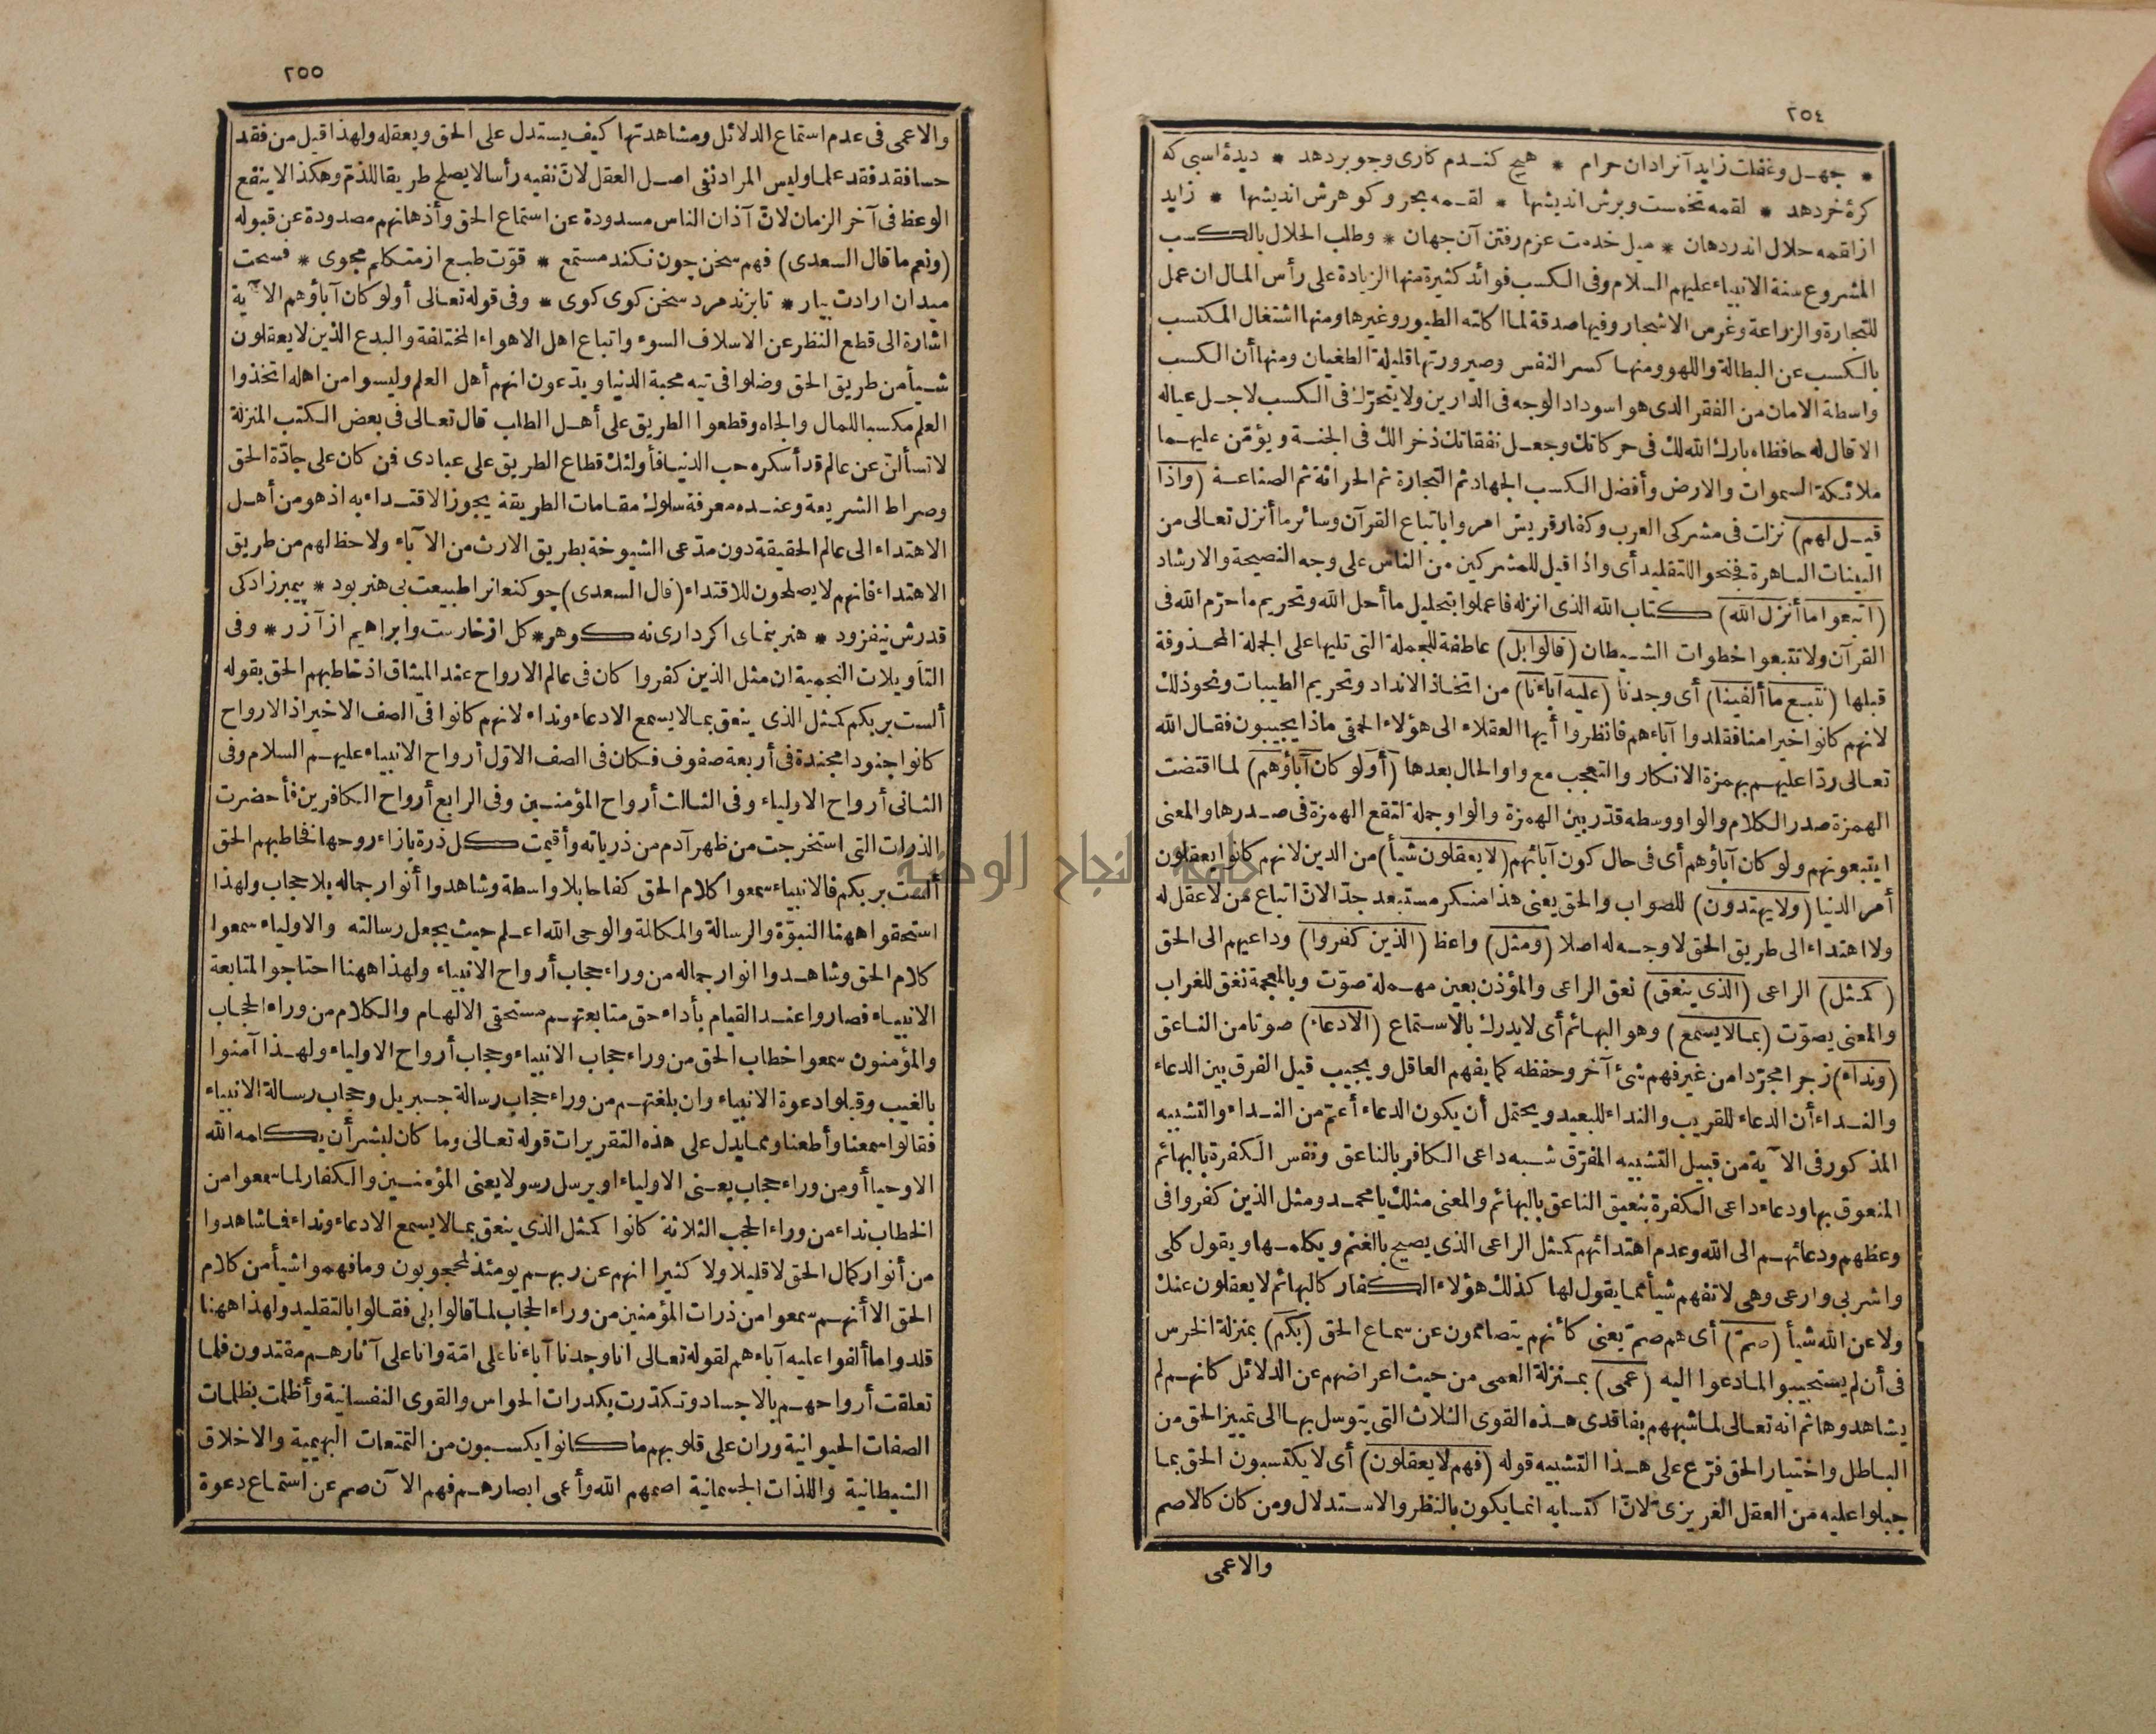 ٢٥٤
* جهـل وغفلت زايد آنرادان حرام * هيچ كنـدم كارى وجو بر دهد * ديدۀ اسبى كه
كرۀ خر دهد * لقمه تخمست وبرش انديشها * لقـمه بحر وكوهرش انديشها * زايد
ازلقمه حلال اندر دهان * ميل خدمت عزم رفتن آن جهان * وطلب الحلال بالكسب
المشروع سنة الانبياء عليهم السلام وفى الكسب فوائد كثيرة منها الزيادة على رأس المال ان عمل
للتجارة والزراعة وغرس الاشجار وفيها صدقة لما اكلته الطيور وغيرها ومنها اشتغال المكتسب
بالكسب عن البطالة واللهو ومنها كسر النفس وصيرورتها قليلة الطغيان ومنها أن الكسب
واسطة الامان من الفقر الذى هو اسوداد الوجه فى الدارين ولا يتحرّك فى الكسب لاجـل عياله
الا قال له حافظاه بارك الله لك فى حركاتك وجعـل نفقاتك ذخرالك فى الجنـة ويؤمّن عليهـما
ملائكة السموات والارض وأفضل الكسب الجهاد ثم التجارة ثم الحراثة ثم الصناعـة (واذا
قيـل لهم) نزلت فى مشركى العرب وكفار قريش امروا باتباع القرآن وسائر ما أنزل تعالى من
البينات الباهرة فجنحوا للتقليد أى واذا قيل للمشركين من الناس على وجه النصيحة والارشاد
(اتبعوا ما أنزل الله) كتاب الله الذى انزله فاعملوا بتحليل ما أحل الله وتحريم ما حرّم الله فى
القرآن ولا تتبعوا خطوات الشـيطان (قالوا بل) عاطفة للجملة التى تليها على الجملة المحـذوفة
قبلها (نتبـع ما ألفينا) أى وجدنا (عليه آباءنا) من اتخـاذ الانداد وتحريم الطيبات ونحو ذلك
لانهم كانوا خيرا منا فقلدوا آباءهم فانظروا أيها العقلاء الى هؤلاء الحمقى ماذا يجيبون فقال الله
تعالى ردّا عليهـم بهمزة الانكار والتعجب مع واو الحال بعدها (أولو كان آباؤهم) لما اقتضت
الهمزة صدر الكلام والواو وسطه قدّر بين الهمزة والواو جملة لتقع الهمزة فى صـدرها والمعنى
ايتبعونهم ولو كان آباؤهم أى فى حال كون آبائهم (لا يعقلون شيأ) من الدين لانهم كانوا يعقلون
أمر الدنيا (ولا يهتدون) للصواب والحق يعنى هذا منكر مستبعد جدّا لانّ اتباع من لا عقل له
ولا اهتداء الى طريق الحق لا وجـه له اصلا (ومثل) واعظ (الذين كفروا) وداعيهم الى الحق
(كمـثل) الراعى (الذى ينعق) نعق الراعى والمؤذن بعين مهـملة صوّت وبالمعجمة نغق للغراب
والمعنى يصوّت (بما لا يسمع) وهو البهائم أى لا يدرك بالاستماع (الا دعاء) صوتا من الناعق
(ونداء) زجرا مجرّدا من غير فهم شئ آخر وحفظه كما يفهم العاقل ويجيب قيل الفرق بين الدعاء
والنـداء أن الدعاء للقريب والنداء للبعيد ويحتمل أن يكون الدعاء أعمّ من النـداء والتشبيه
المذكور فى الآية من قبيل التشبيه المفرّق شـبه داعى الكافر بالناعق ونفس الكفرة بالبهائم
المنعوق بها ودعاء داعى الكفرة بنعيق الناعق بالبهائم والمعنى مثلك يا محمـد ومثل الذين كفروا فى
وعظهم ودعائهـم الى الله وعدم اهتدائهم كمـثل الراعى الذى يصيح بالغنم ويكلمـها ويقول كلى
واشربى وارعى وهى لا تفهم شيأ مما يقول لها كذلك هؤلاء الكفار كالبهائم لا يعقلون عنك
ولا عن الله شيأ (صمّ) أى هم صمّ يعنى كأنهم يتصاممون عن سماع الحق (بكم) بمنزلة الخرس
فى أن لم يستجيبوا لما دعوا اليه (عمى) بمـنزلة العمى من حيث اعراضهم عن الدلائل كانهـم لم
يشاهدوها ثم انه تعالى لما شبههم بفاقدى هـذه القوى الثلاث التى يتوسل بهـا الى تمييز الحق من
الباطل واختيار الحق فرّع على هـذا التشبيه قوله (فهم لا يعقلون) أى لا يكتسبون الحق بما
جبلوا عليه من العقل الغريزى لانّ اكتسابه انما يكون بالنظر والاسـتدلال ومن كان كالاصم
والاعمى
٢٥٥
والاعمى فى عدم استماع الدلائل ومشاهدتها كيف يستدل على الحق ويعقله ولهذا قيل من فقد
حسا فقد فقد علما وليس المراد نفى اصـل العقل لانّ نفيه رأسا لا يصلح طريقا للذمّ وهكذا لا ينفع
الوعظ فى آخر الزمان لانّ آذان الناس مسدودة عن استماع الحق وأذهانهم مصدودة عن قبوله
(ونعم ما قال السعدى) فهم سخن چون نكند مستمع * قوّت طبع از متكلم مجوى * فسحت
ميدان ارادت بيار * تا بزند مرد سخن كوى كوى * وفى قوله تعالى أولو كان آباؤهم الآية
اشارة الى قطع النظر عن الاسلاف السوء واتباع اهل الاهواء المختلفة والبدع الذين لا يعقلون
شـيأ من طريق الحق وضلوا فى تيه محبة الدنيا ويدّعون انهم أهل العلم وليسوا من اهله اتخذوا
العلم مكسبا للمال والجاه وقطعوا الطريق على أهـل الطلب قال تعالى فى بعض الكتب المنزلة
لا تسألنّ عن عالم قد أسكره حب الدنيا فأولئك قطاع الطريق على عبادى فمن كان على جادّة الحق
وصراط الشريعة وعنـده معرفة سلوك مقامات الطريقة يجوز الاقتـداء به اذ هو من أهـل
الاهتداء الى عالم الحقيقة دون مدّعى الشيوخة بطريق الارث من الآباء ولا حظ لهم من طريق
الاهتداء فانهم لا يصلحون للاقتداء (قال السعدى) چو كنعانرا طبيعت بى هنر بود * پيمبر زادكى
قدرش نيفزود * هنر بنماى اكر دارى نه كوهر * كل از خارست وابراهيم از آزر * وفى
التأويلات النجمية ان مثل الذين كفروا كان فى عالم الارواح عند الميثاق اذ خاطبهم الحق بقوله
ألست بربكم كمـثل الذى ينعق بما لا يسمع الا دعاء ونداء لانهم كانوا فى الصف الاخير اذ الارواح
كانوا جنودا مجندة فى أربعة صفوف فكان فى الصف الاوّل أرواح الانبياء عليهـم السلام وفى
الثانى أرواح الاولياء وفى الثالث أرواح المؤمنـين وفى الرابع أرواح الكافرين فأحضرت
الذرات التى استخرجت من ظهر آدم من ذرياته وأقيمت كل ذرة بازاء روحها فخاطبهم الحق
ألست بربكم فالانبياء سمعوا كلام الحق كفاحا بلا واسطة وشاهدوا أنوار جماله بلا حجاب ولهذا
استحقوا ههنا النبوّة والرسالة والمكالمة والوحى الله اعـلم حيث يجعل رسالته والاولياء سمعوا
كلام الحق وشاهـدوا انوار جماله من وراء حجاب أرواح الانبياء ولهذا ههنا احتاجوا لمتابعة
الانبياء فصاروا عنـد القيام بأداء حق متابعتهـم مستحقى الالهام والكلام من وراء الحجاب
والمؤمنون سمعوا خطاب الحق من وراء حجاب الانبياء وحجاب أرواح الاولياء ولهـذا آمنوا
بالغيب وقبلوا دعوة الانبياء وان بلغتهـم من وراء حجاب رسالة جبريل وحجاب رسالة الانبياء
فقالوا سمعنا وأطعنا ومما يدل على هذه التقريرات قوله تعالى وما كان لبشر أن يكلمه الله
الا وحيا أو من وراء حجاب يعـنى الاولياء او يرسل رسولا يعنى المؤمنـين والكفار لما سمعوا من
الخطاب نداء من وراء الحجب الثلاثة كانوا كمـثل الذى ينعق بما لا يسمع الا دعاء ونداء فما شاهدوا
من أنوار كمال الحق لا قليلا ولا كثيرا انهم عن ربهـم يومئذ لمحجوبون وما فهموا شيأ من كلام
الحق الا أنهـم سمعوا من ذرات المؤمنين من وراء الحجاب لما قالوا بلى فقالوا بالتقليد ولهذا ههنا
قلدوا ما ألفوا عليه آباءهم لقوله تعالى انا وجدنا آباءنا على امّة وانا على آثارهـم مقتدون فلما
تعلقت أرواحهـم بالاجساد وتكدّرت بكدرات الحواس والقوى النفسانية وأظلمت بظلمات
الصفات الحيوانية وران على قلوبهم ما كانوا يكسـبون من التمتعات البهيمية والاخلاق
الشيطانية واللذات الجسمانية اصمهم الله وأعمى ابصارهـم فهم الآن صم عن استماع دعوة